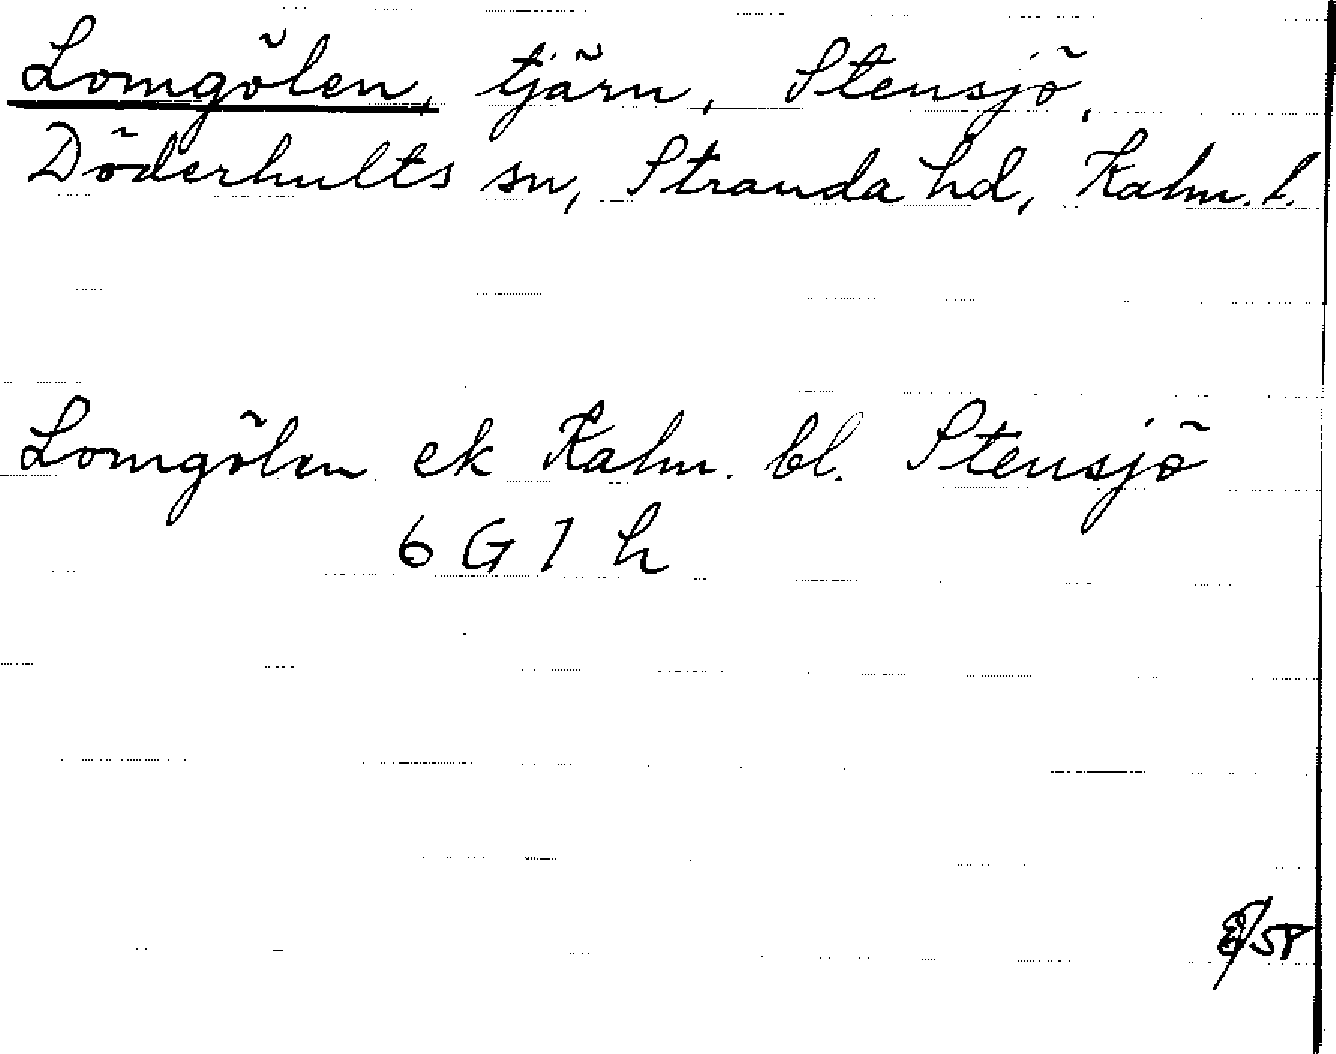 Lomgölen, tjärn, Stensjö,
Döderhults sn, Stranda hd, Kalm. l.
Lomgölen ek Kalm. bl. Stensjö
6 G 1 h